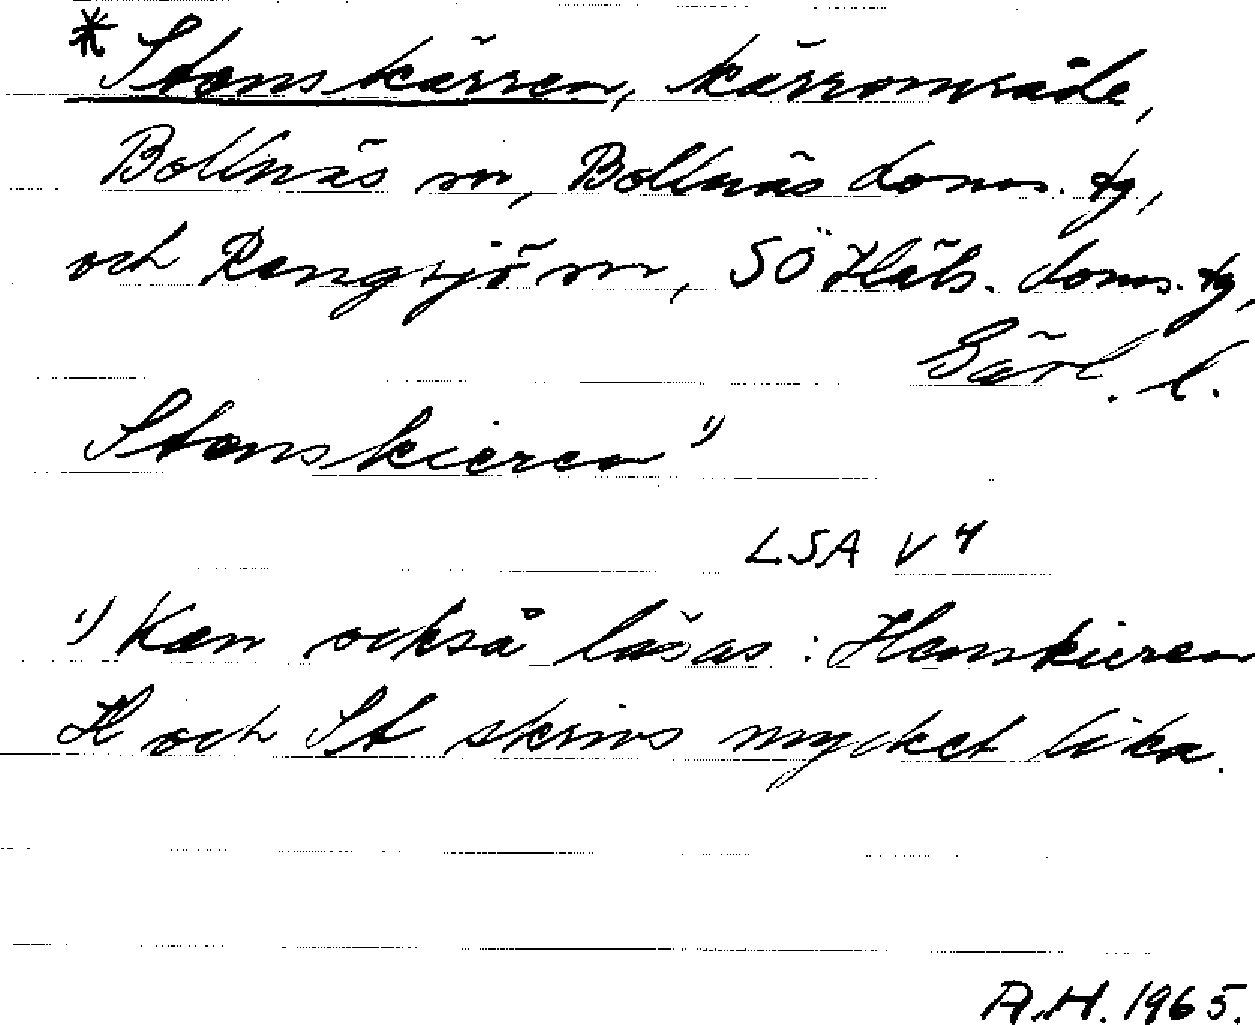 *Stenskärren, kärrområde,
Bollnäs sn, Bollnäs doms. tg,
och Rengsjö sn, SÖ Häls. doms. tg,
Gävl. l.
Stenskieren ¹⁾
LSA V 4
¹⁾ Kan också läsas: Henskieren
H och St skrivs mycket lika.
A.H. 1965.